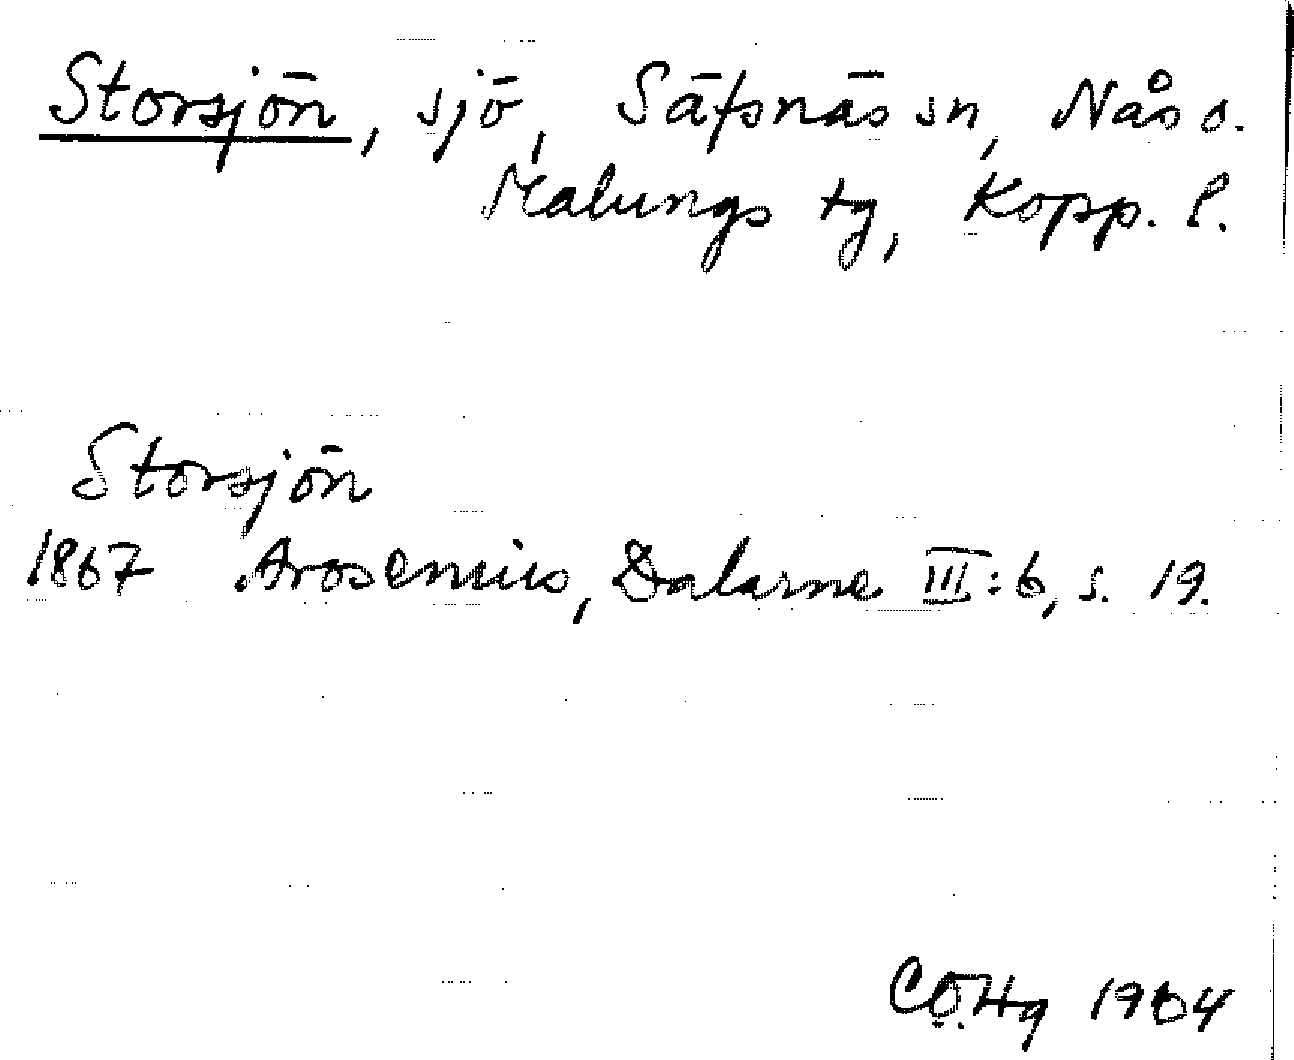 Storsjön, sjö, Säfsnäs sn, Nås o.
Malungs tg, Kopp. l.
Storsjön
1867 Arosenius, Dalarne III:6, s. 19.
CÖHg 1964